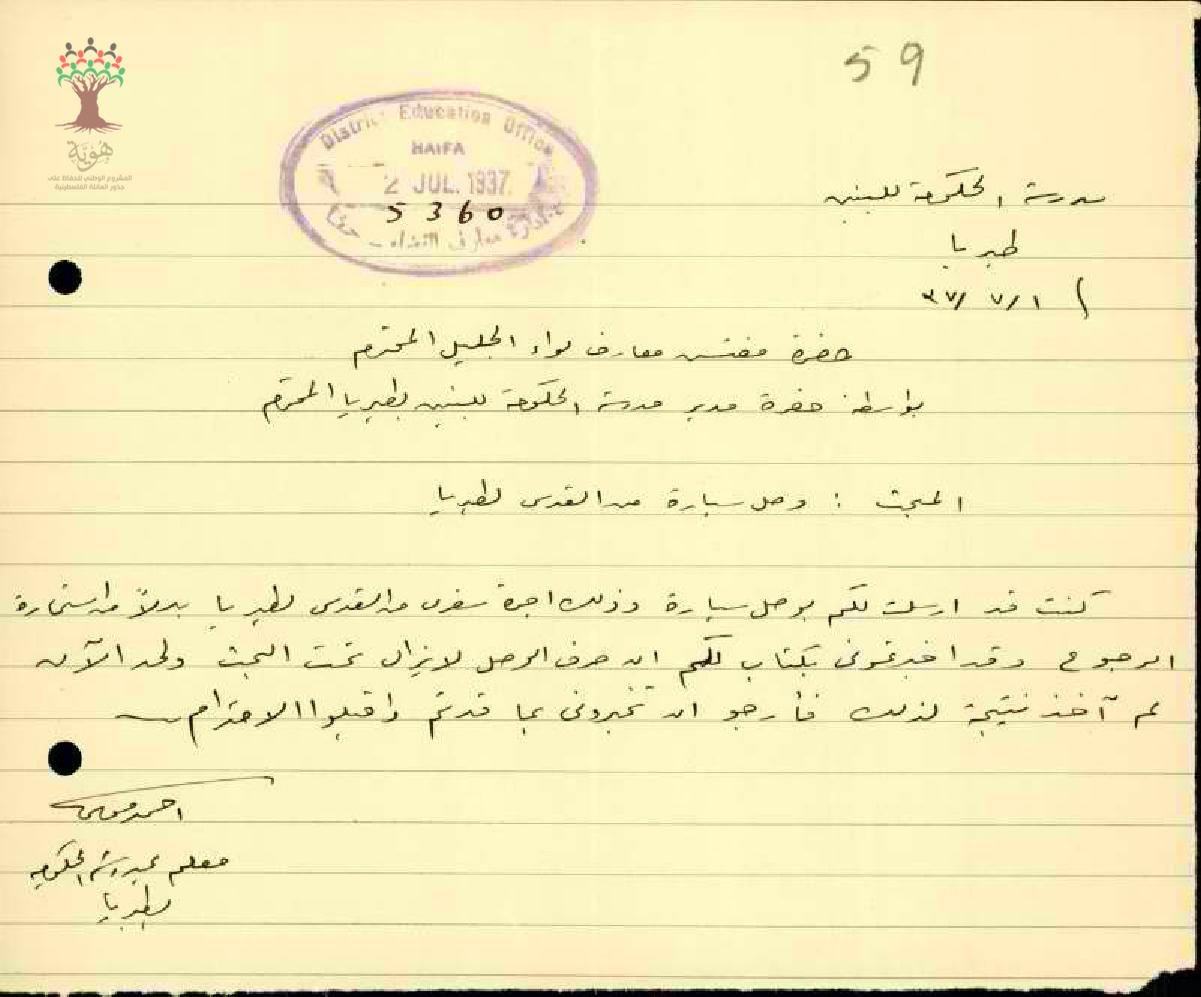 59
هوية
المشروع الوطني للحفاظ على
جذور العائلة الفلسطينية
District Education Office
HAIFA
2 JUL. 1937.
5360
ادارة معارف القضاء حيفا
مدرسة الحكومة للبنين
طبريا
٣٧/٧/١
حضرة مفتش معارف لواء الجليل المحترم
بواسطة حضرة مدير مدرسة الحكومة للبنين بطبريا المحترم
المبحث : وصل سيارة من القدس لطبريا
كنت قد ارسلت لكم بوصل سيارة وذلك اجرة سفري من القدس لطبريا بدلاً من استمارة
الرجوع وقد اخبرتموني بكتاب لكم ان صرف الوصل لا يزال تحت البحث ولحد الآن
لم آخذ نتيجة لذلك فأرجو ان تخبروني بما قد تم واقبلوا الاحترام
احمد موسى
معلم بمدرسة الحكومة
بطبريا